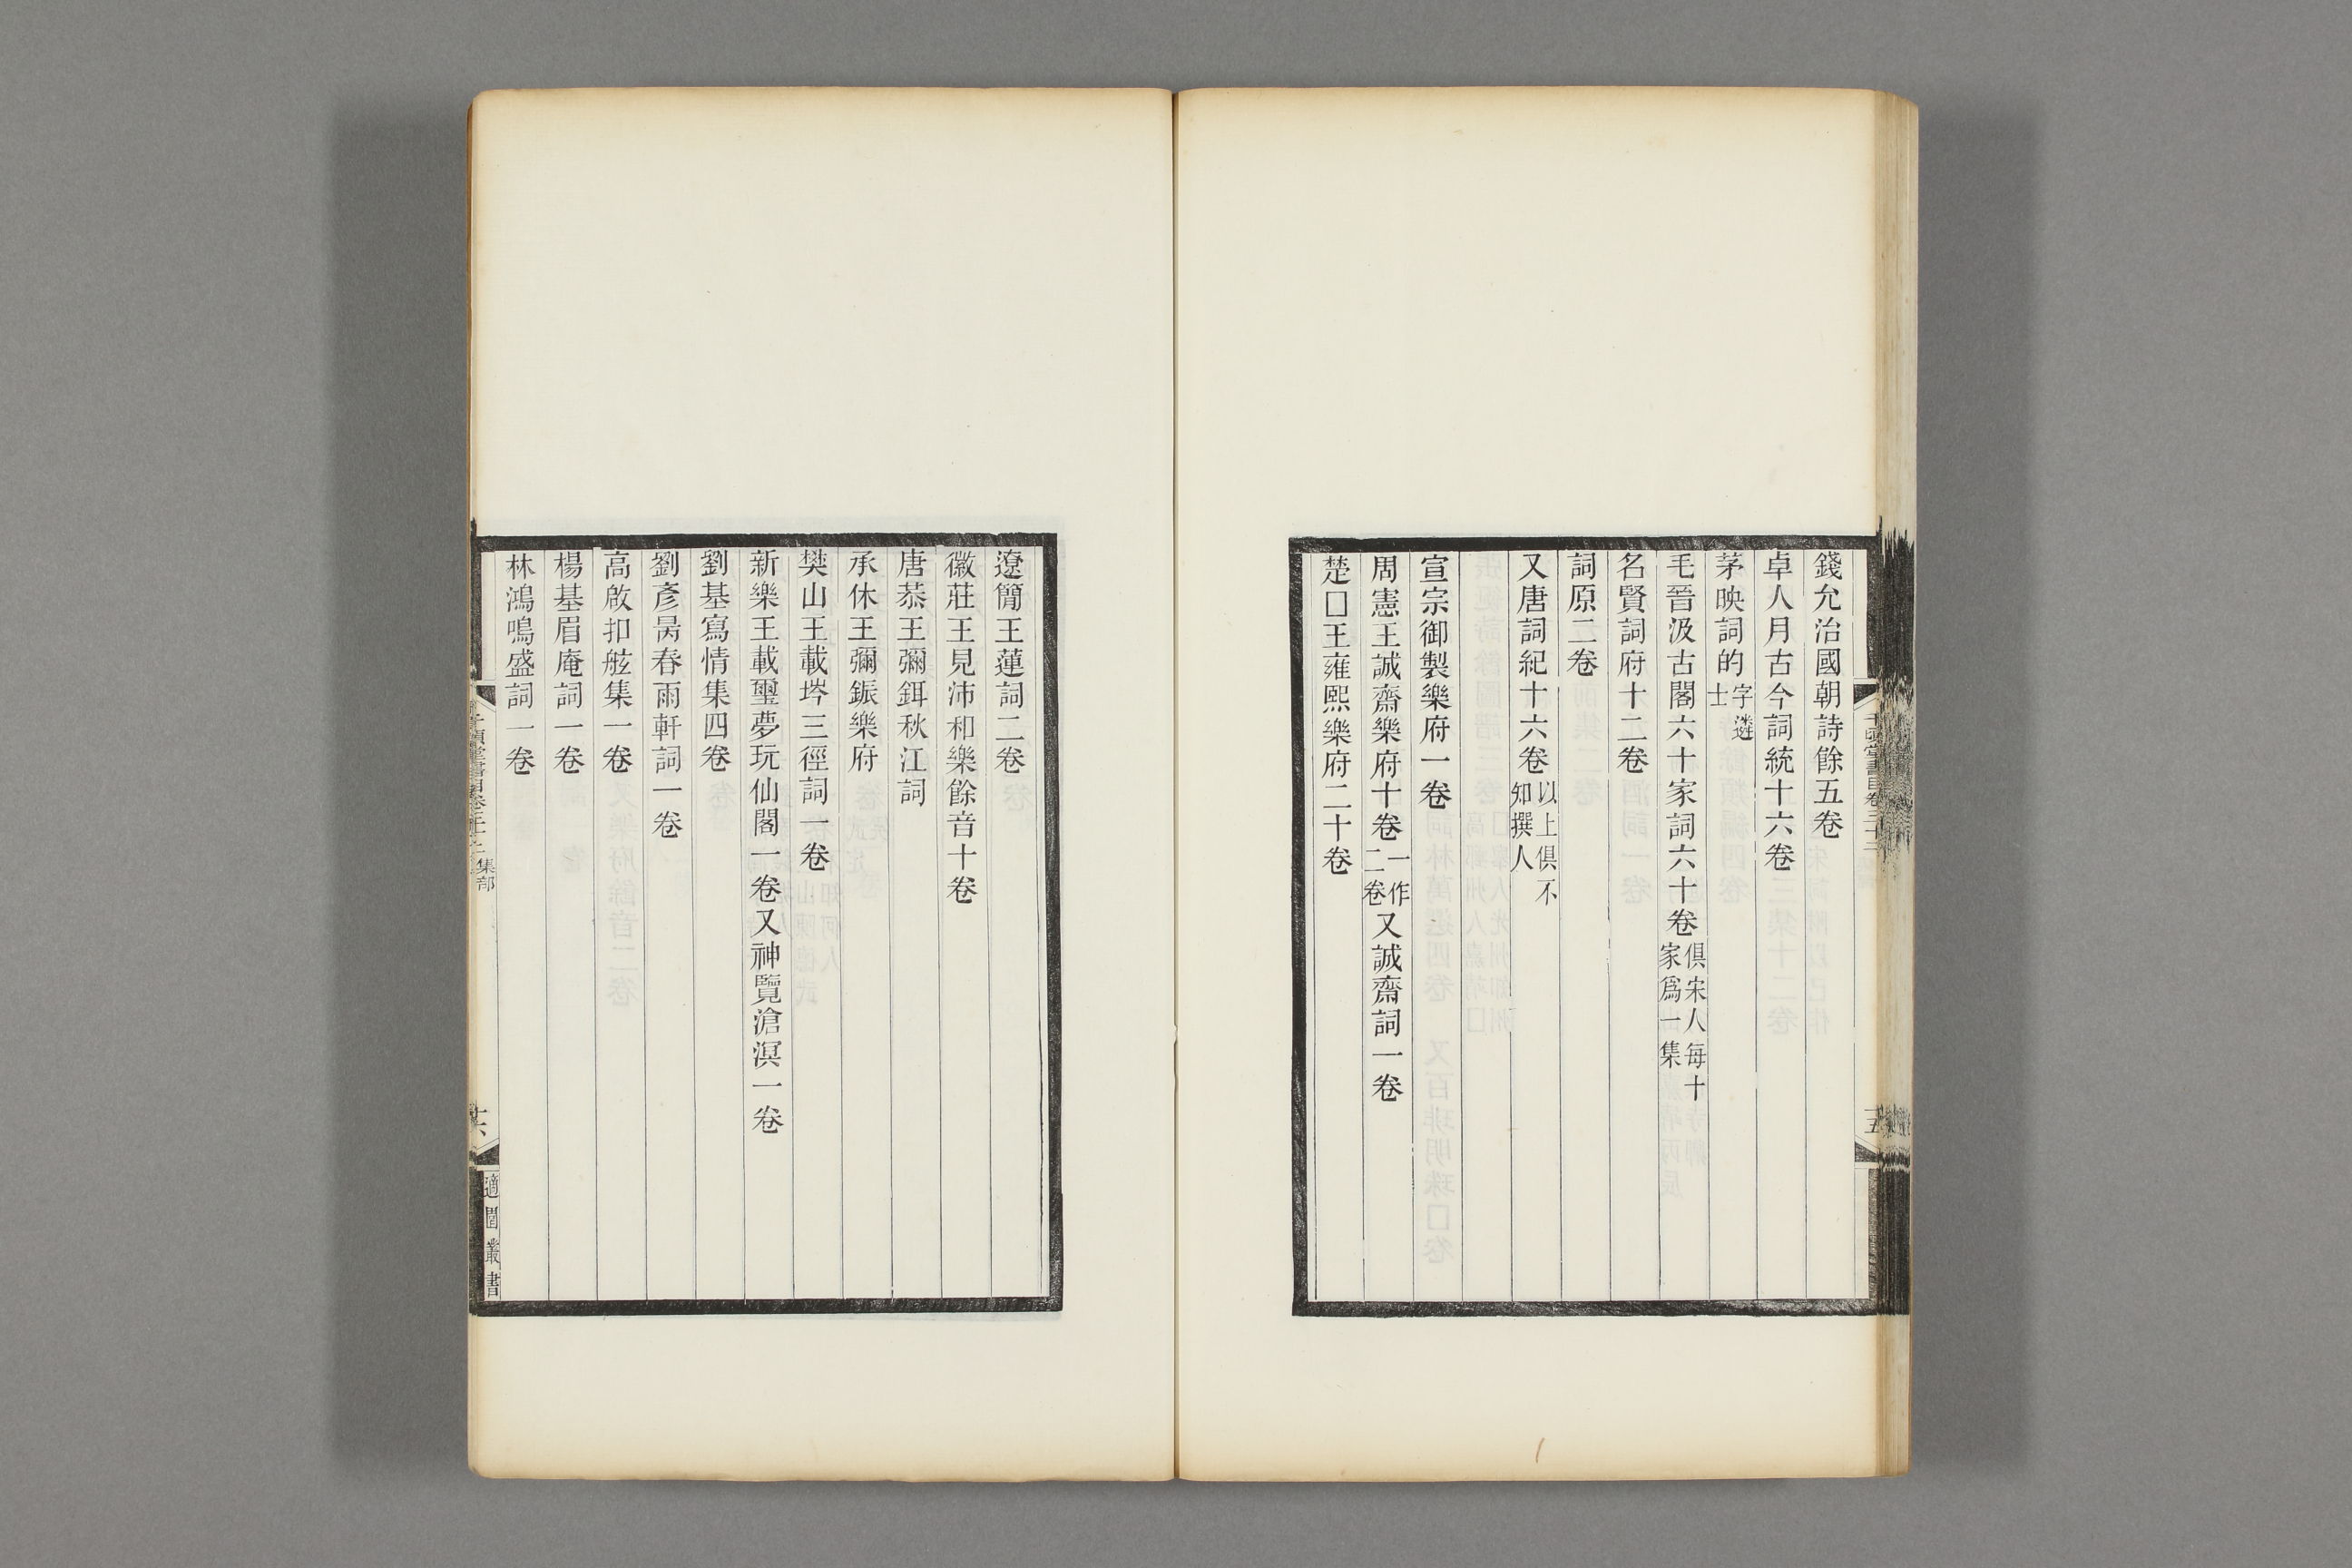 錢允治國朝詩餘五卷
卓人月古今詞統十六卷
茅映詞的字遴士
毛晉汲古閣六十家詞六十卷俱宋人每十家爲一集
名賢詞府十二卷
詞原二卷
又唐詞紀十六卷以上俱不知撰人
宣宗御製樂府一卷
周憲王誠齋樂府十卷一作二卷又誠齋詞一卷
楚□王雍熙樂府二十卷
遼簡王蓮詞二卷
徽莊王見沛和樂餘音十卷
唐恭王彌鉺秋江詞
承休王彌鋠樂府
樊山王載坅三徑詞一卷
新樂王載璽夢玩仙閣一卷又神覽滄溟一卷
劉基寫情集四卷
劉彥昺春雨軒詞一卷
高啟扣舷集一卷
楊基眉庵詞一卷
林鴻鳴盛詞一卷
集部
十六
適園叢書